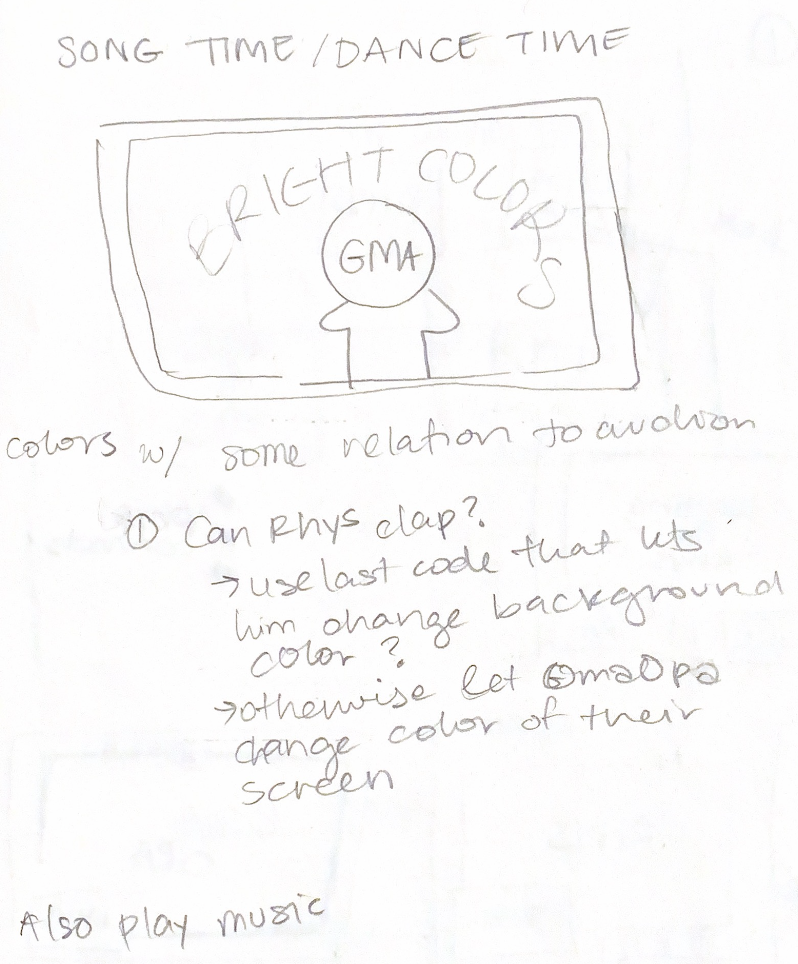 SONG TIME / DANCE TIME
BRIGHT COLORS
GMA
colors w/ some relation to
① Can Rhys clap?
→ use last code that lets
him change background
color?
→ otherwise let GmaOpa
change color of their
screen
Also play music